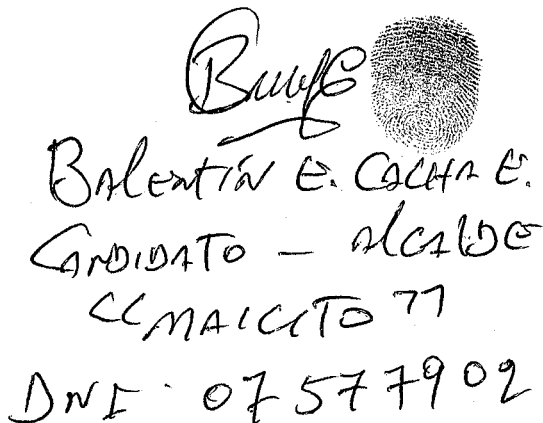 Balentín E. Cacha E.
Candidato - Alcalde
"MAICITO"
DNI. 07577902